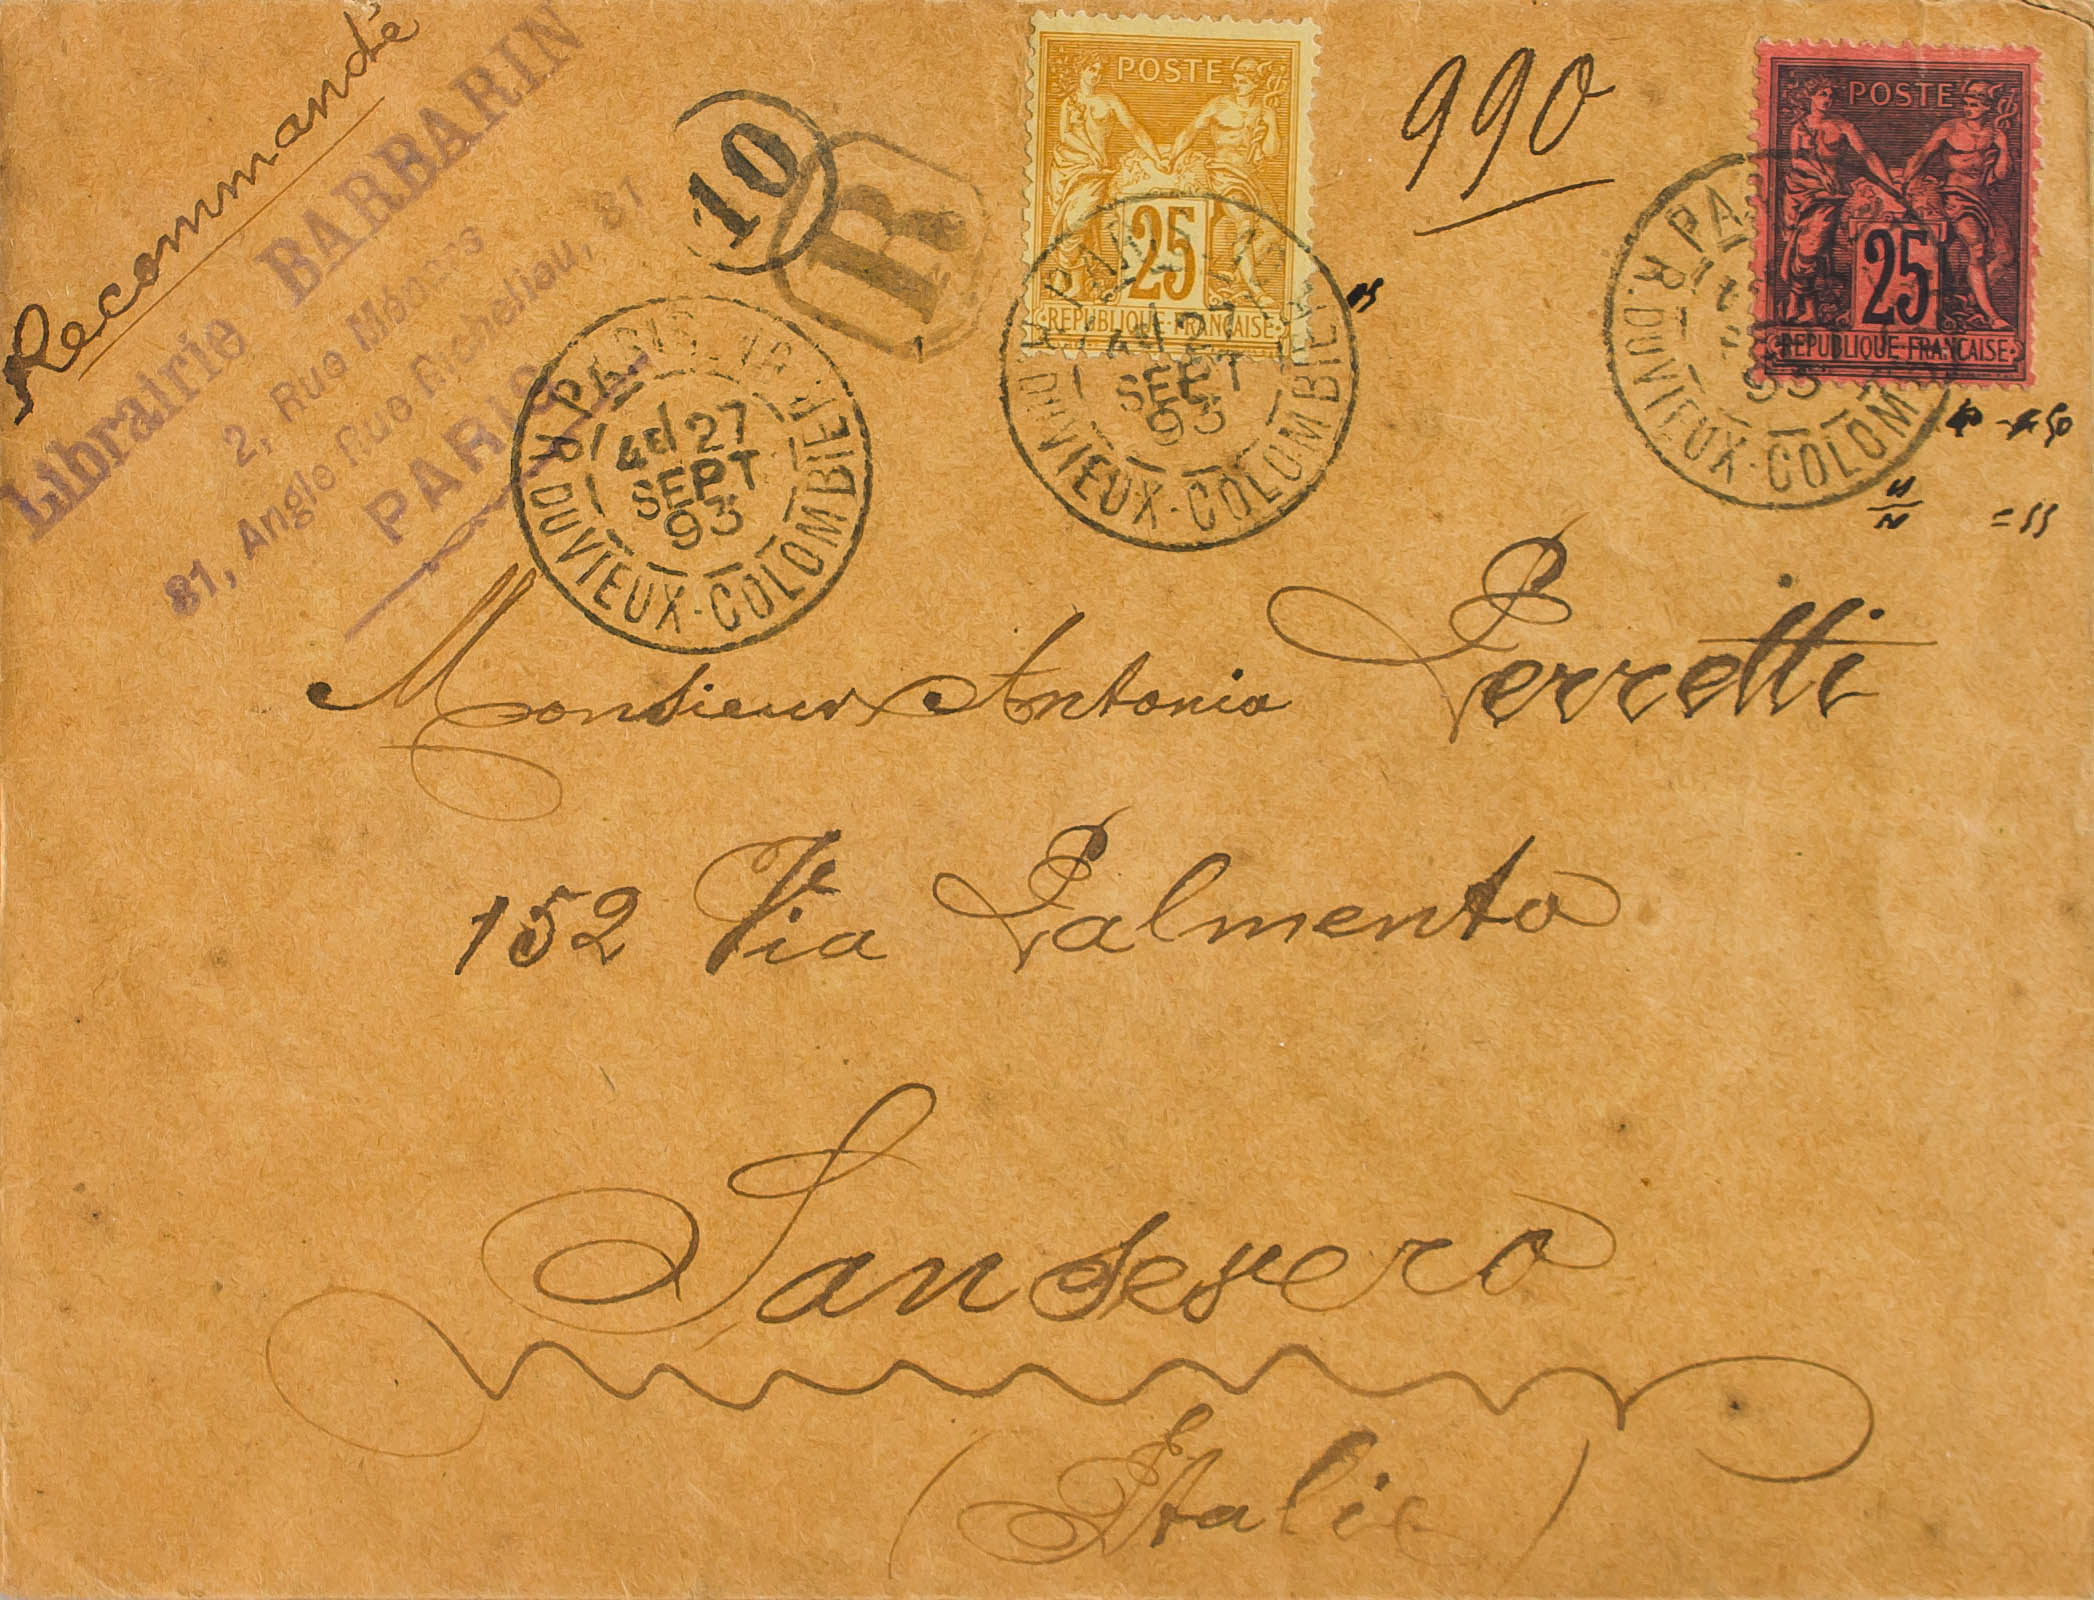 Recommandé
Librairie BARBARIN
2, Rue Méhul
81, Angle Rue Richelieu, 81
PARIS
10
R
POSTE
25
REPUBLIQUE FRANÇAISE
990
POSTE
25
REPUBLIQUE FRANÇAISE
PARIS
4e/ 27
SEPT
93
R. DU VIEUX-COLOMBIER
PARIS
4e/ 27
SEPT
93
R. DU VIEUX-COLOMBIER
PA
93
R. DU VIEUX-COLOM
Monsieur Antonio Perretti
152 Via Palmento
Sansevero
(Italie)